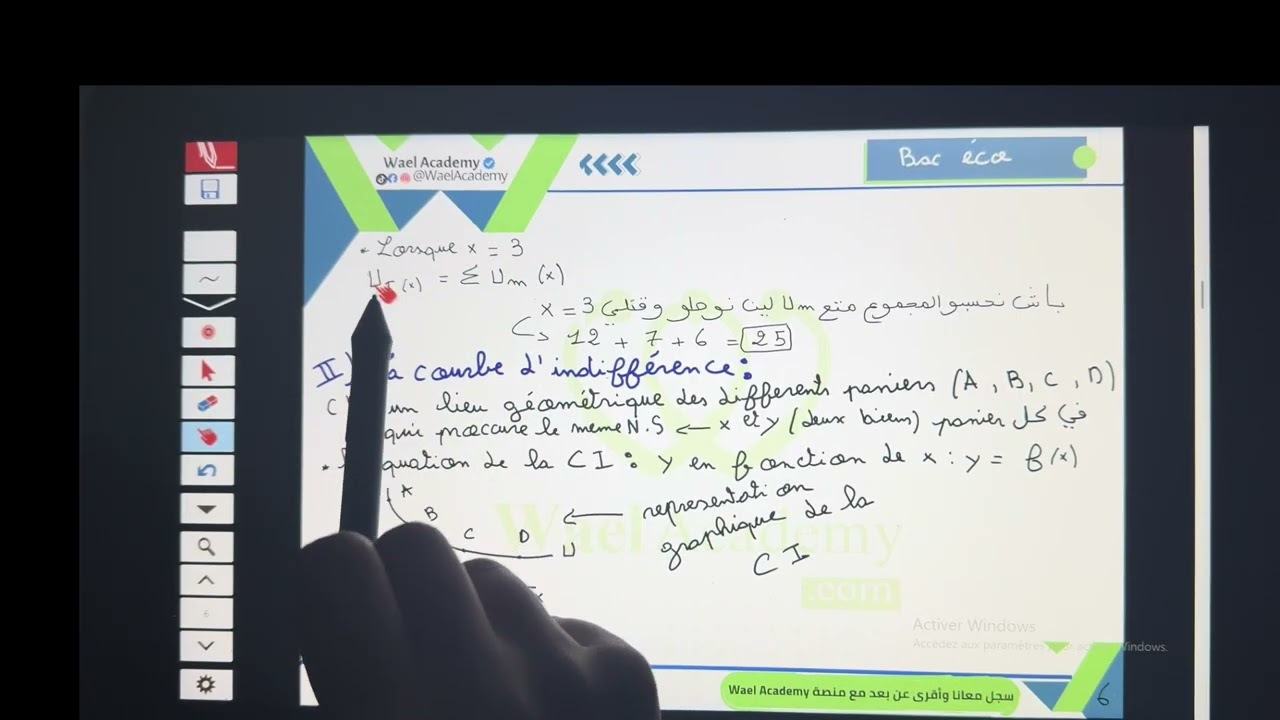 Wael Academy
@WaelAcademy
Bac éco
* Lorsque x = 3
UT(x) = Σ Um (x)
باش نحسبو المجموع متع Um لين نوصلو وقتلي x = 3
12 + 7 + 6 = 25
II) courbe d'indifférence:
un lieu géométrique des differents paniers (A, B, C, D)
qui procure le meme N.S ← x et y (deux biens) panier في كل
* quation de la CI : y en fonction de x : y = f(x)
A
B
C
D
U
← representation
graphique de la
CI
Wael Academy
.com
Activer Windows
Accédez aux paramètres pour Windows.
سجل معانا وأقرى عن بعد مع منصة Wael Academy
6